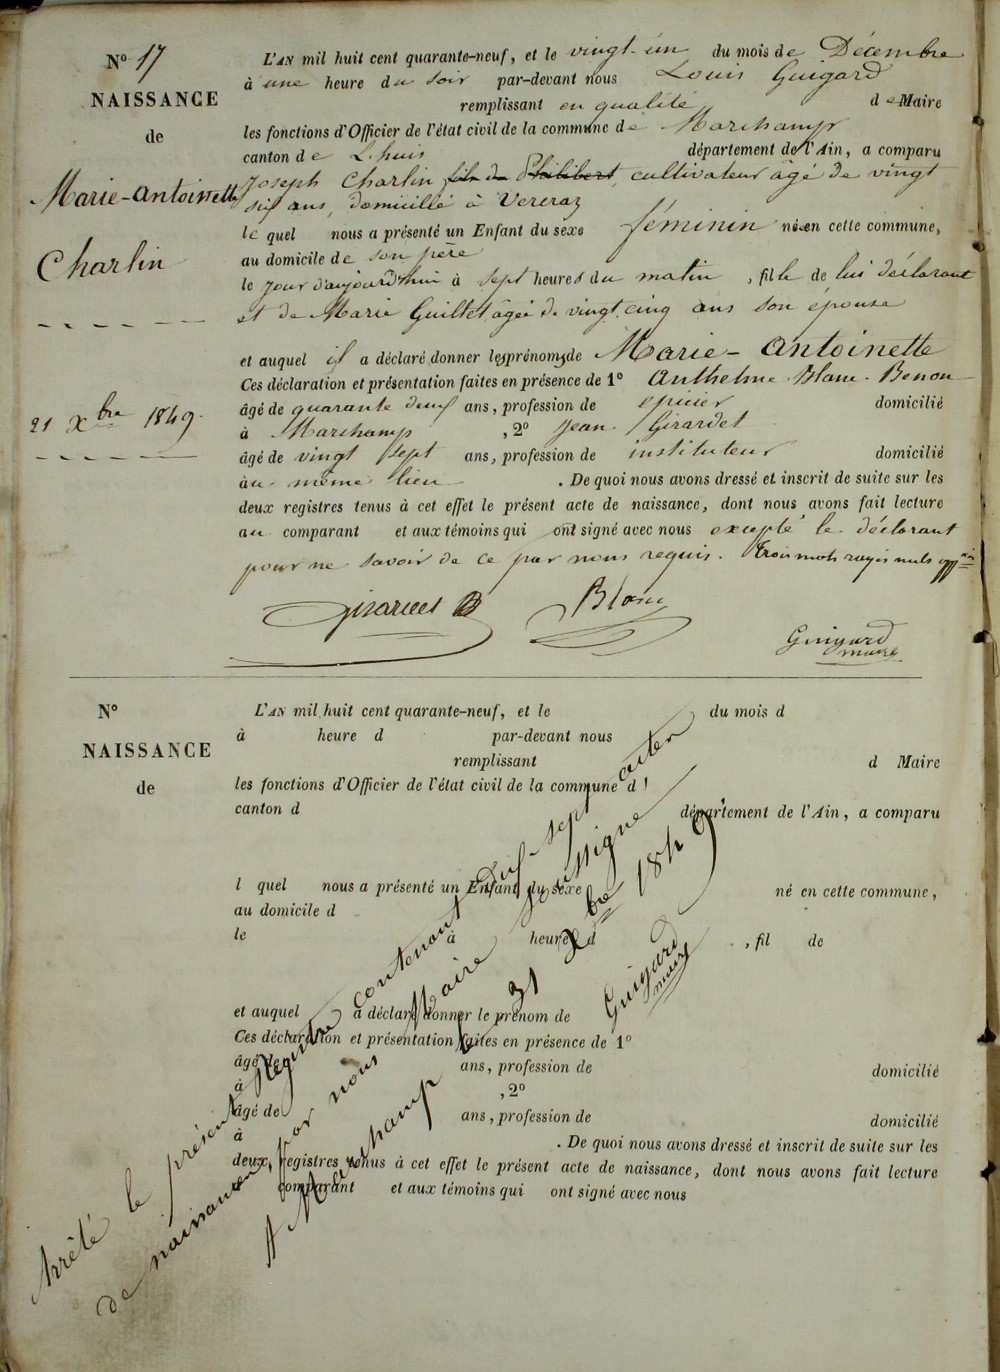 N° 17
NAISSANCE
de
Marie-Antoinette
Charlin
21 Xbre 1849.
L'AN mil huit cent quarante-neuf, et le vingt-un du mois de Décembre
à une heure du soir par-devant nous Louis Guigard
remplissant en qualité de Maire
les fonctions d'Officier de l'état civil de la commune de Marchamp
canton de Lhuis département de l'Ain, a comparu
Joseph Charlin fils de Philibert, cultivateur âgé de vingt
six ans, domicilié à Vercraz
le quel nous a présenté un Enfant du sexe féminin né en cette commune,
au domicile de son père
le jour d'aujourd'hui à sept heures du matin, fille de lui déclarant
et de Marie Guillet âgée de vingt cinq ans son épouse
et auquel il a déclaré donner les prénoms de Marie-Antoinette
Ces déclaration et présentation faites en présence de 1° Anthelme Blanc-Benon
âgé de quarante deux ans, profession de épicier domicilié
à Marchamp, 2° Jean Girardet
âgé de vingt sept ans, profession de instituteur domicilié
au même lieu. De quoi nous avons dressé et inscrit de suite sur les
deux registres tenus à cet effet le présent acte de naissance, dont nous avons fait lecture
au comparant et aux témoins qui ont signé avec nous excepté le déclarant
pour ne savoir de ce par nous requis. Trois mots rayés nuls
Girardet Blanc
Guigard
maire
N°
NAISSANCE
de
L'AN mil huit cent quarante-neuf, et le du mois d
à heure d par-devant nous
remplissant d Maire
les fonctions d'Officier de l'état civil de la commune d
canton d département de l'Ain, a comparu
l quel nous a présenté un Enfant du sexe né en cette commune,
au domicile d
le à heure d , fil de
et auquel a déclaré donner le prénom de
Ces déclaration et présentation faites en présence de 1°
âgé de ans, profession de domicilié
à , 2°
âgé de ans, profession de domicilié
à . De quoi nous avons dressé et inscrit de suite sur les
deux registres tenus à cet effet le présent acte de naissance, dont nous avons fait lecture
comparant et aux témoins qui ont signé avec nous
Arrêté le présent Registre contenant dix-sept actes
de naissances par nous Maire soussigné
A Marchamp le 31 Xbre 1849
Guigard
maire